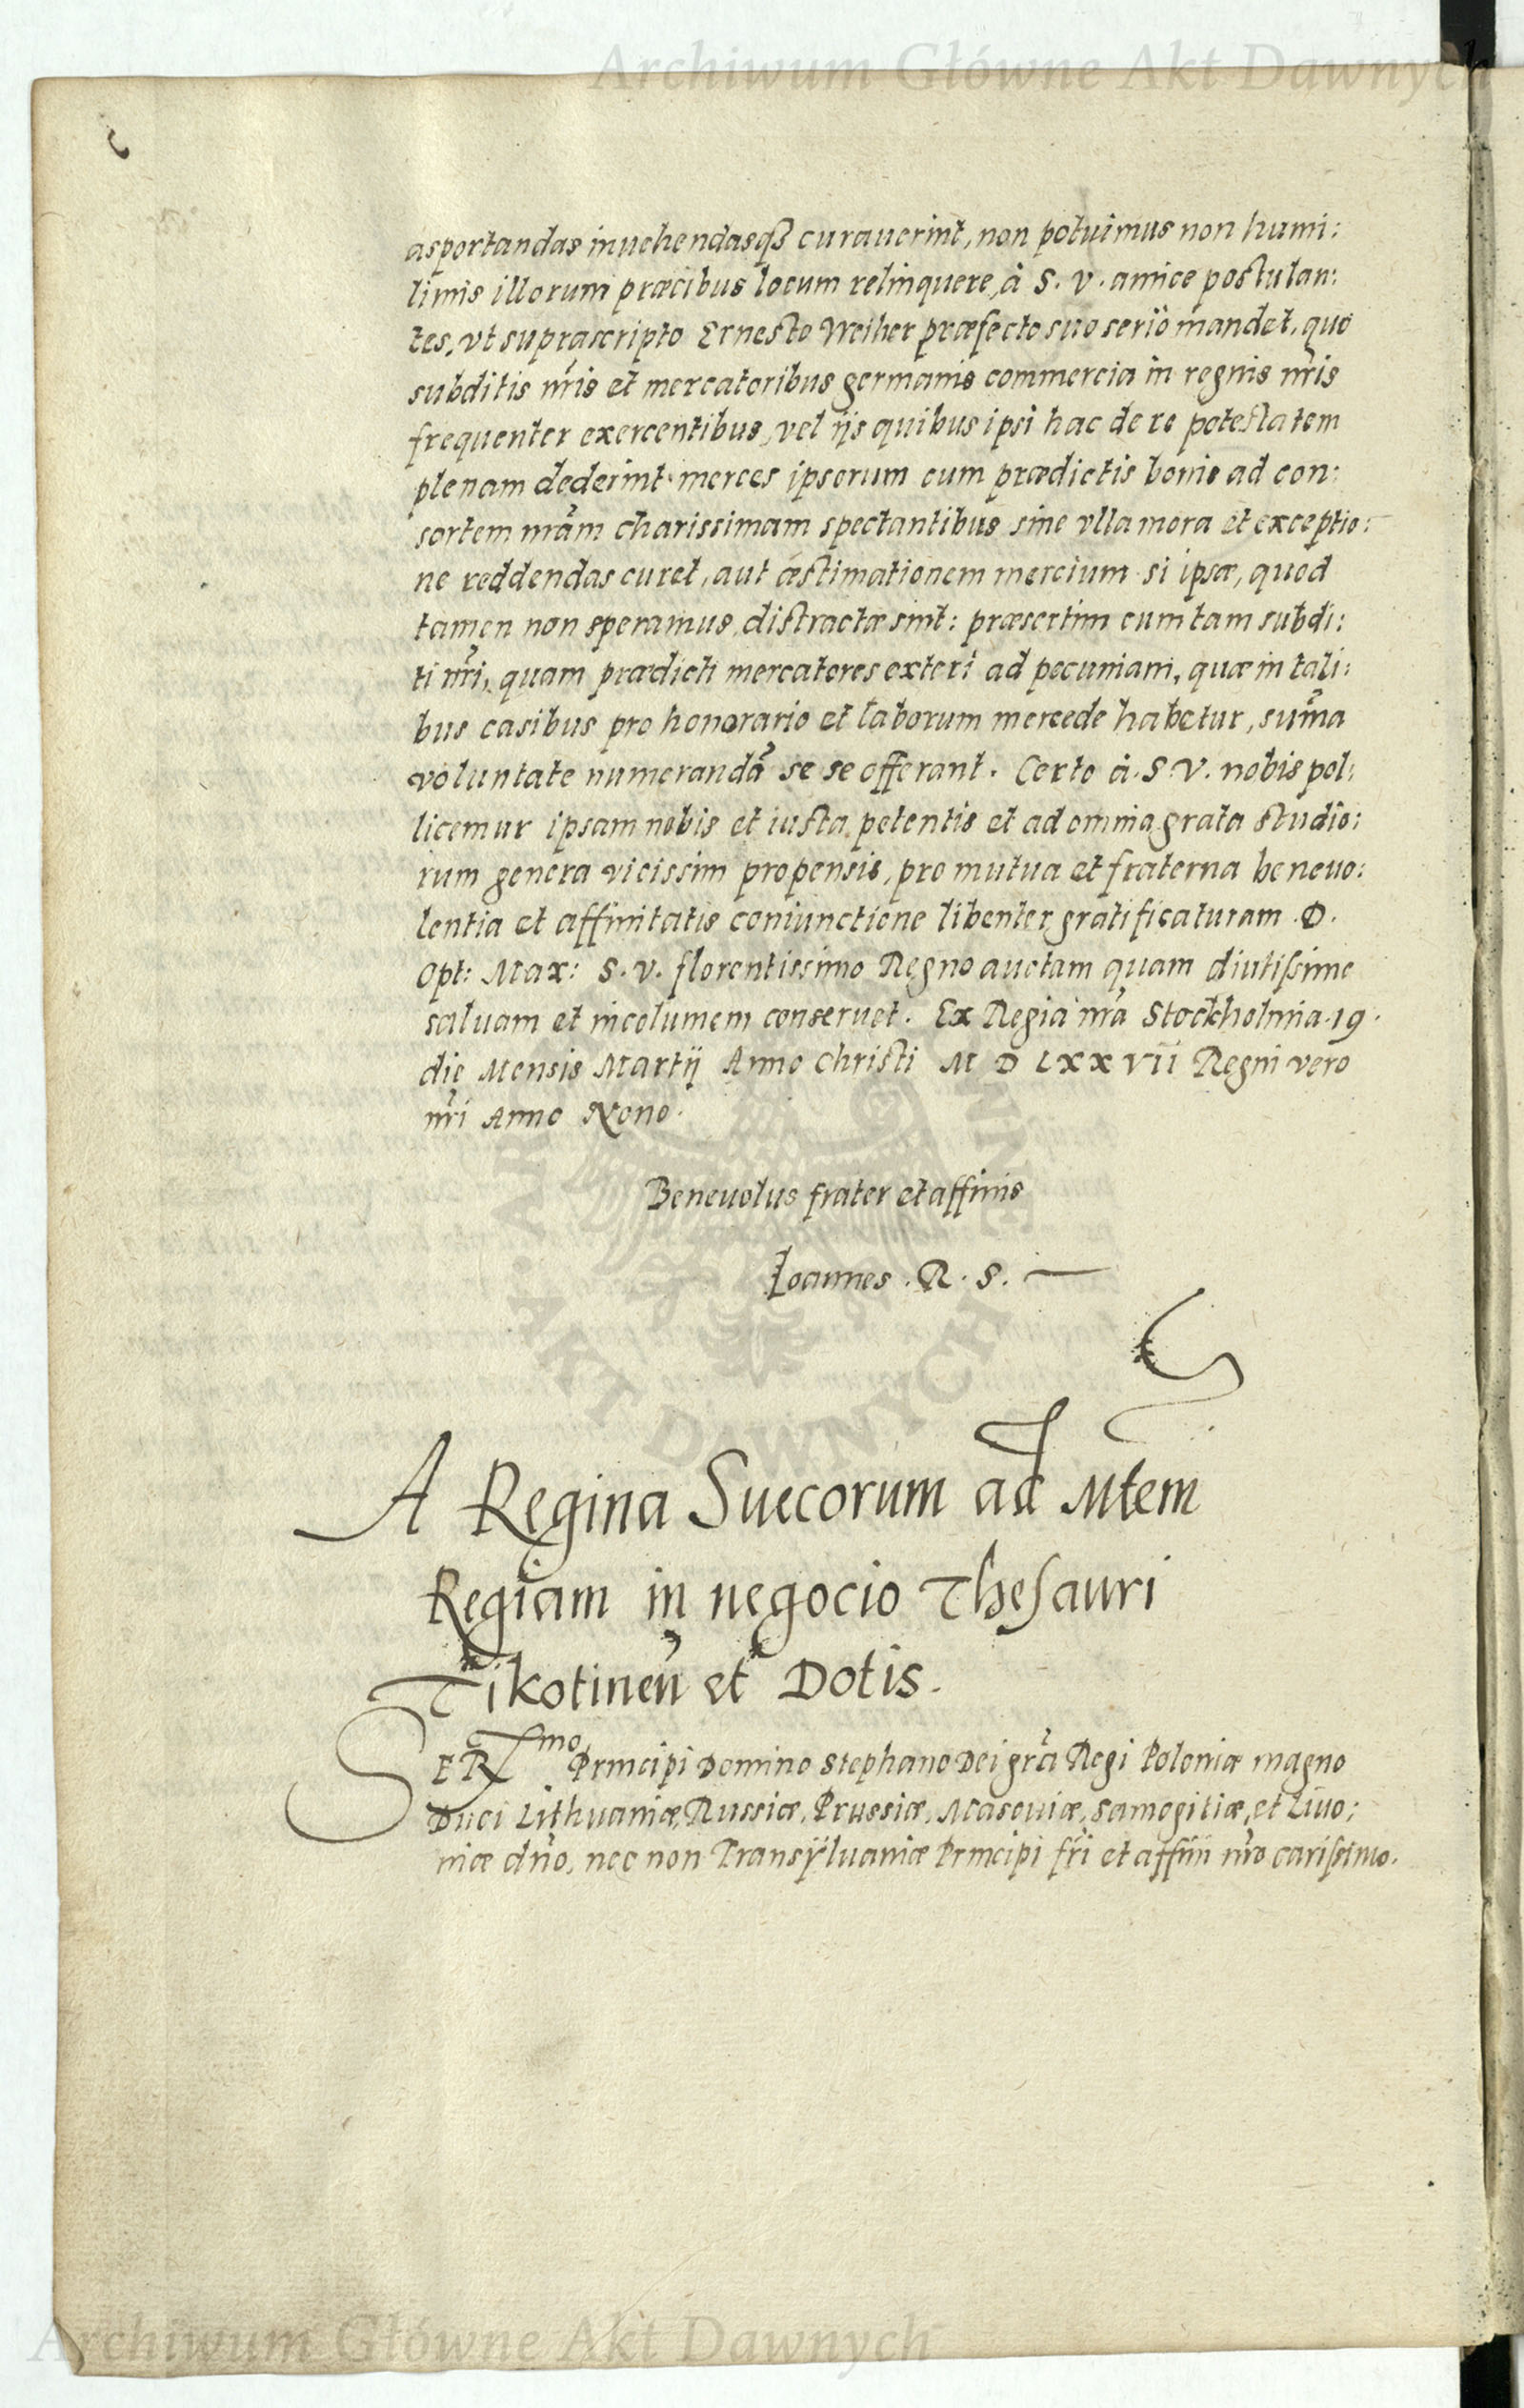 Archiwum Główne Akt Dawnych
asportandas inuehendasq3 curauerint, non potuimus non humi:
limis illorum præcibus locum relinquere, à S. V. amice postulan:
tes, vt suprascripto Ernesto Weiher præfecto suo seriò mandet, quo
subditis nr̃is et mercatoribus germanis commercia in regnis nr̃is
frequenter exercentibus, vel ijs quibus ipsi hac de re potestatem
plenam dederint merces ipsorum cum prædictis bonis ad con:
sortem nr̃am charissimam spectantibus sine vlla mora et exceptio:
ne reddendas curet, aut æstimationem mercium si ipsæ, quod
tamen non speramus, distractæ sint: præsertim cum tam subdi:
ti nr̃i, quam prædicti mercatores exteri ad pecuniam, quæ in tali:
bus casibus pro honorario et laborum mercede habetur, sum̃a
voluntate numerandã se se offerant. Certo à S. V. nobis pol:
licemur ipsam nobis et iusta petentis et ad omnia grata studio:
rum genera vicissim propensis, pro mutua et fraterna beneuo:
lentia et affinitatis coniunctione libenter gratificaturam. D.
Opt: Max: S. V. florentissimo Regno auctam quam diutissime
saluam et incolumem conseruet. Ex Regia nr̃a Stockholmia 19.
die Mensis Martij Anno Christi M D LXXVII Regni vero
nr̃i Anno Nono.
Beneuolus frater et affinis
Ioannes . R . S.
A Regina Suecorum ad Mtem
Regiam in negocio Thesauri
Tikotineñ et Dotis.
SERmo Principi Domino Stephano Dei gr̃a Regi Poloniæ magno
Duci Lithuaniæ, Russiæ, Prussiæ, Masouiæ, Samogitiæ, et Liuo:
niæ dño, nec non Transÿluaniæ Principi fr̃i et affini nr̃o carissimo.
ARCHIWUM GŁÓWNE AKT DAWNYCH
Archiwum Główne Akt Dawnych